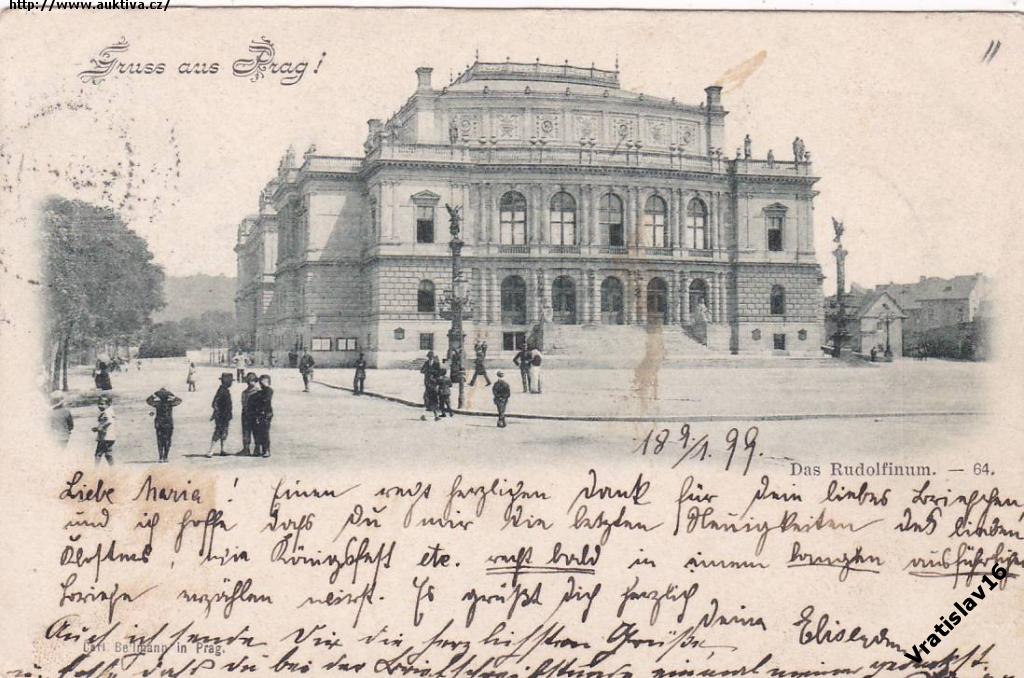 http://www.auktiva.cz/
Gruss aus Prag!
"
18 9/1 99.
Das Rudolfinum. — 64.
Liebe Maria! Einen recht herzlichen Dank für Dein liebes Briefchen,
und ich hoffe daß Du mir die letzten Neuigkeiten des lieben
wie Königsfest etc. recht bald in einem langen ausführlichen
Briefe erzählen wirst. Es grüßt Dich herzlich
Deine
Auch ich sende Dir die herzlichsten Grüße
Carl Bellmann in Prag.
u. hoffe daß du bei der einmal meiner gedenkst.
Vratislav16